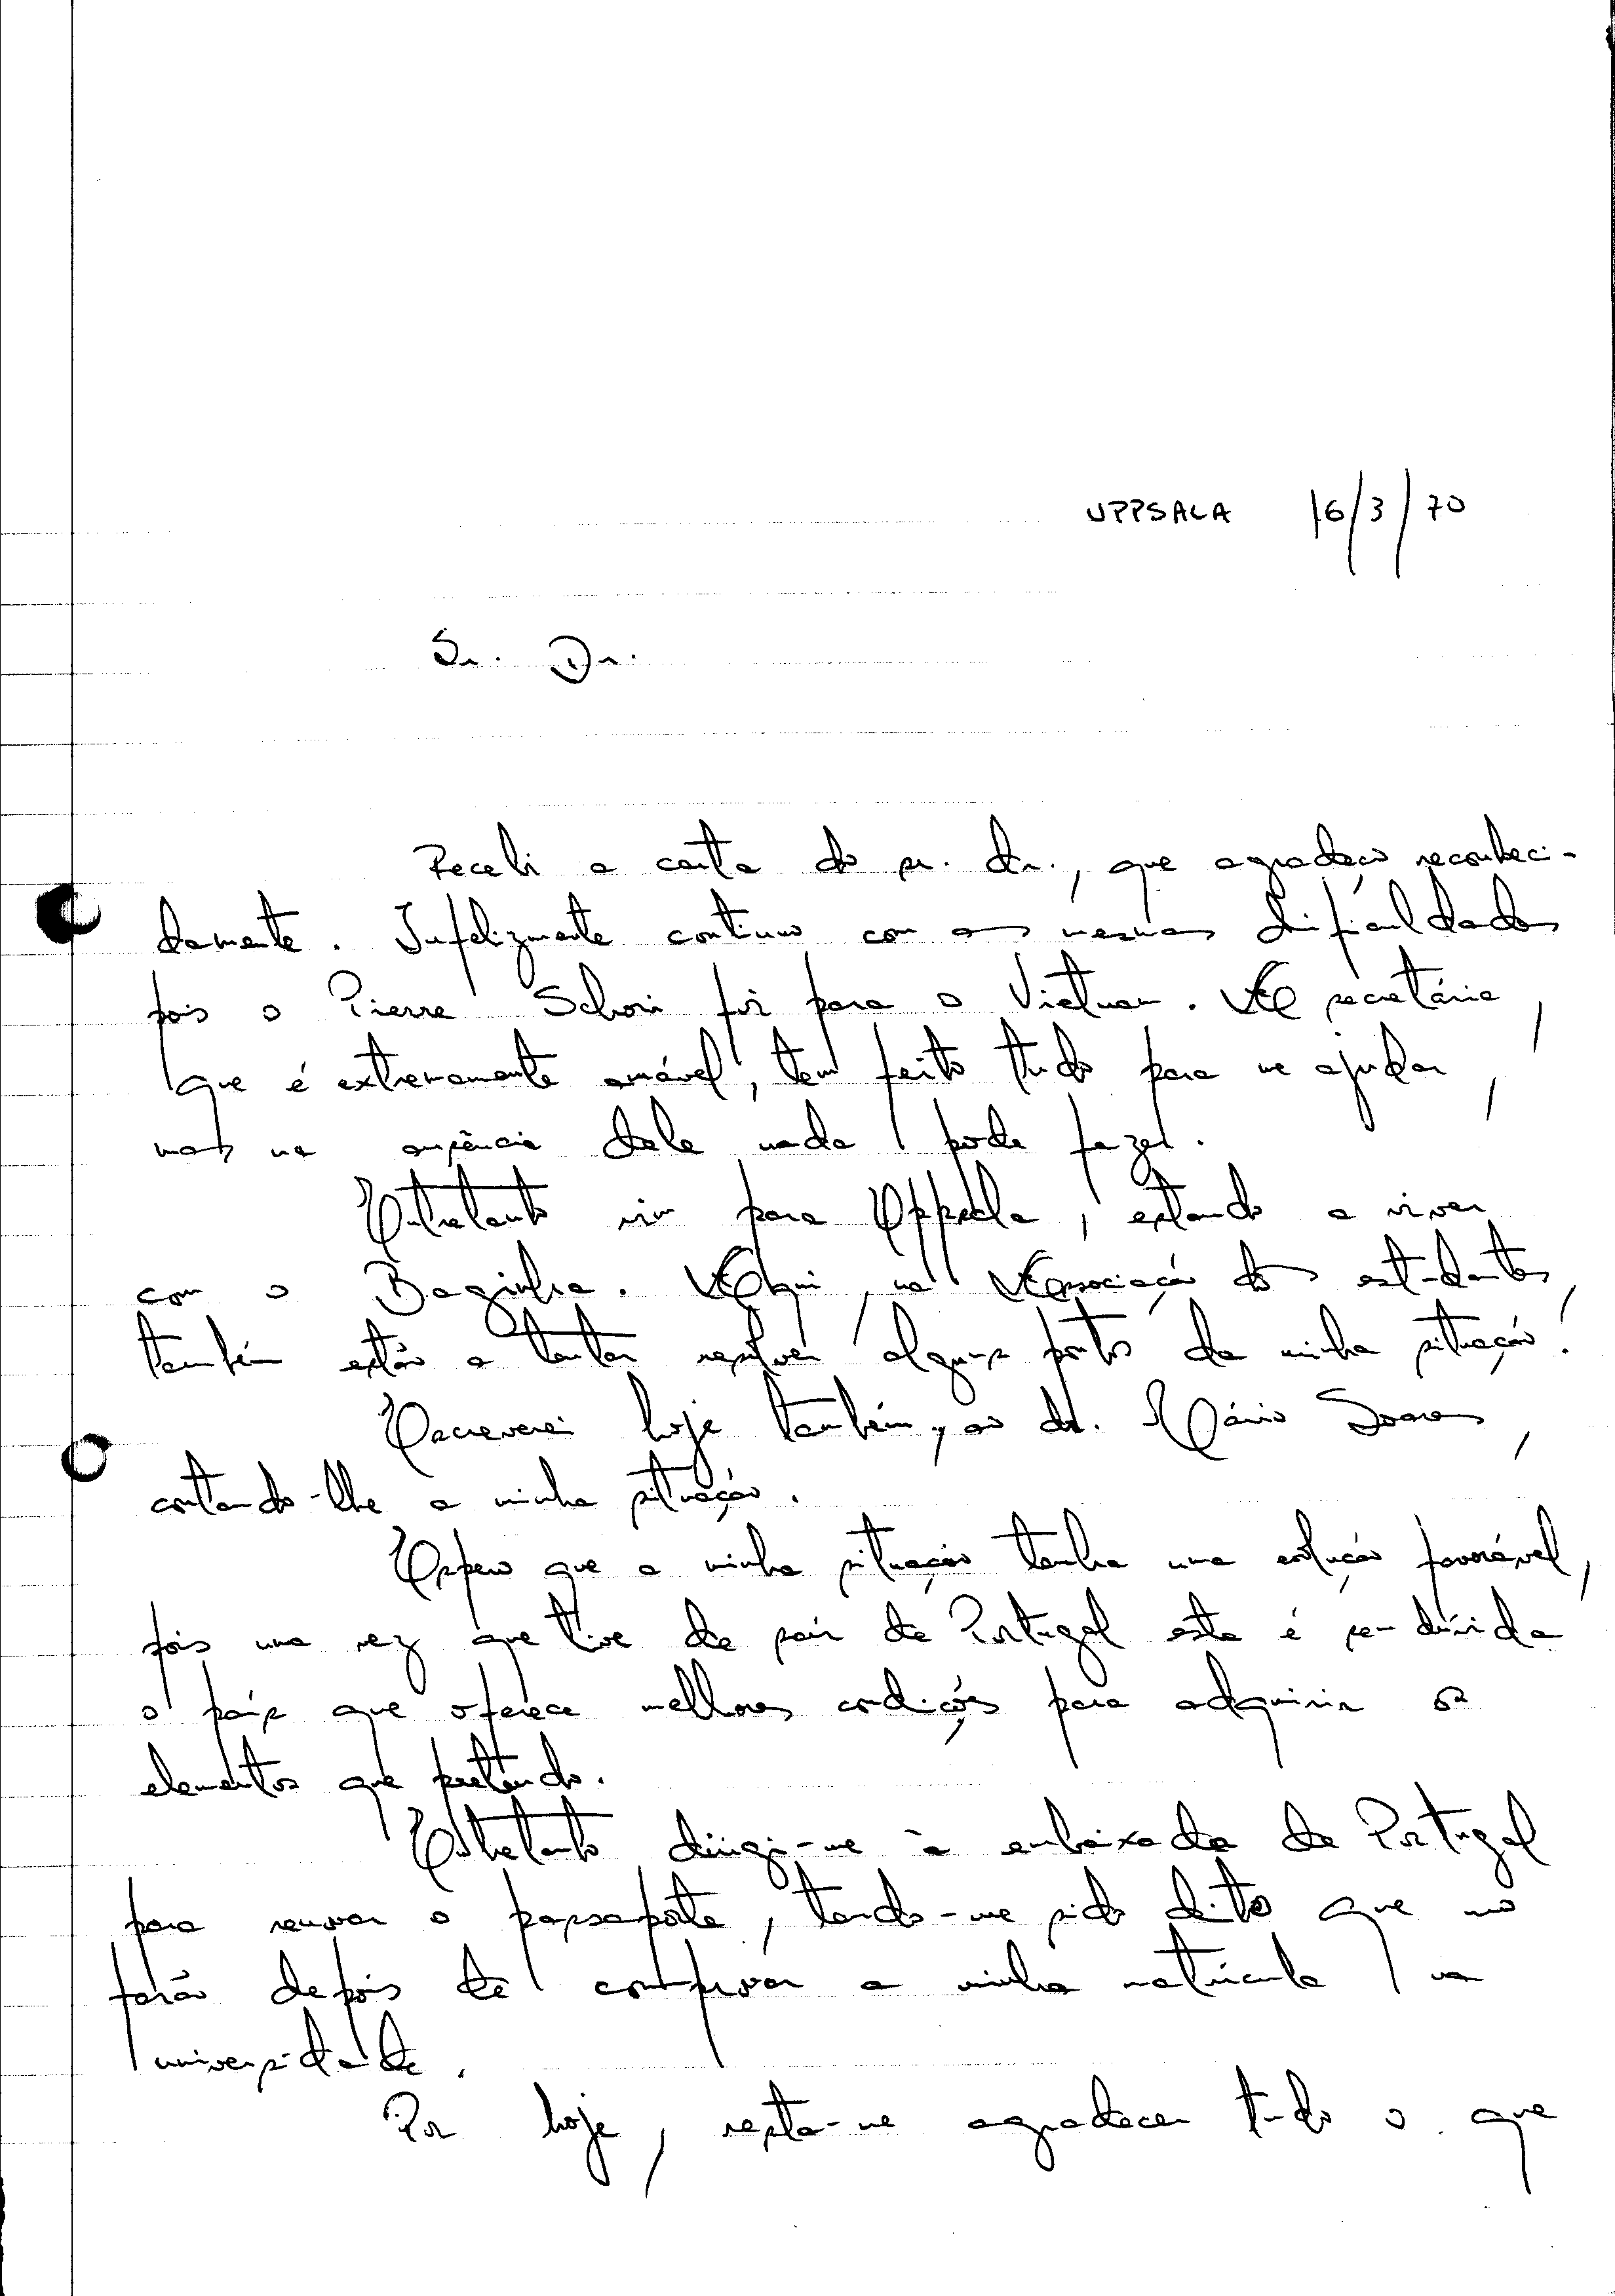 UPPSALA 16/3/70
Sr. Dr.
Recebi a carta do sr. dr., que agradeço reconheci-
damente. Infelizmente continuo com as mesmas dificuldades
pois o Pierre Schori foi para o Vietnam. A secretária,
que é extremamente amável, tem feito tudo para me ajudar,
mas na ausência dele nada pode fazer.
Entretanto vim para Uppsala, estando a viver
com o Baginha. Aqui, na Associação dos estudantes,
também estão a tentar resolver alguns pontos da minha situação.
Escreverei hoje também, ao dr. Mário Soares,
contando-lhe a minha situação.
Espero que a minha situação tenha uma solução favorável,
pois uma vez que tive de sair de Portugal este é sem dúvida
o país que oferece melhores condições para adquirir os
elementos que pretendo.
Entretanto dirigi-me à embaixada de Portugal
para renovar o passaporte, tendo-me sido dito que no
farão depois de comprovar a minha matrícula na
universidade.
Por hoje, resta-me agradecer tudo o que